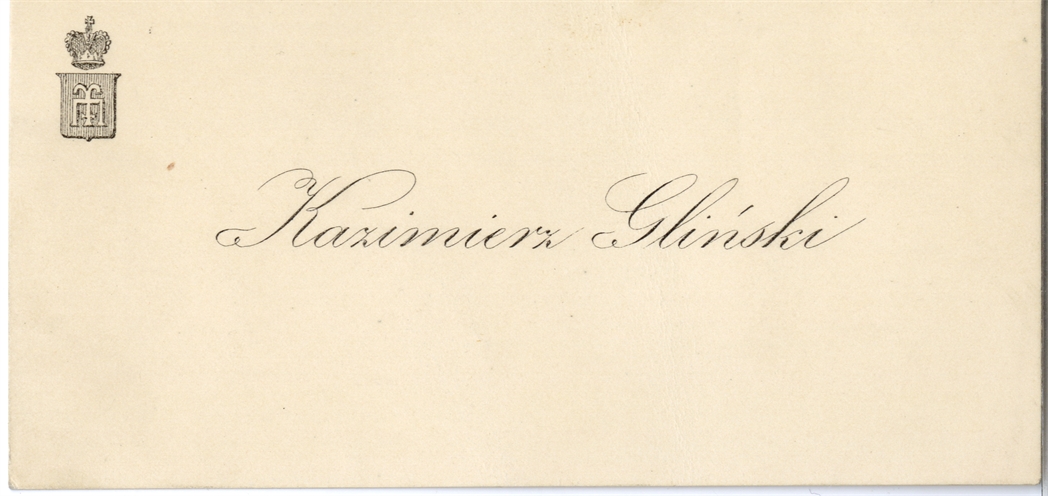 Kazimierz Gliński